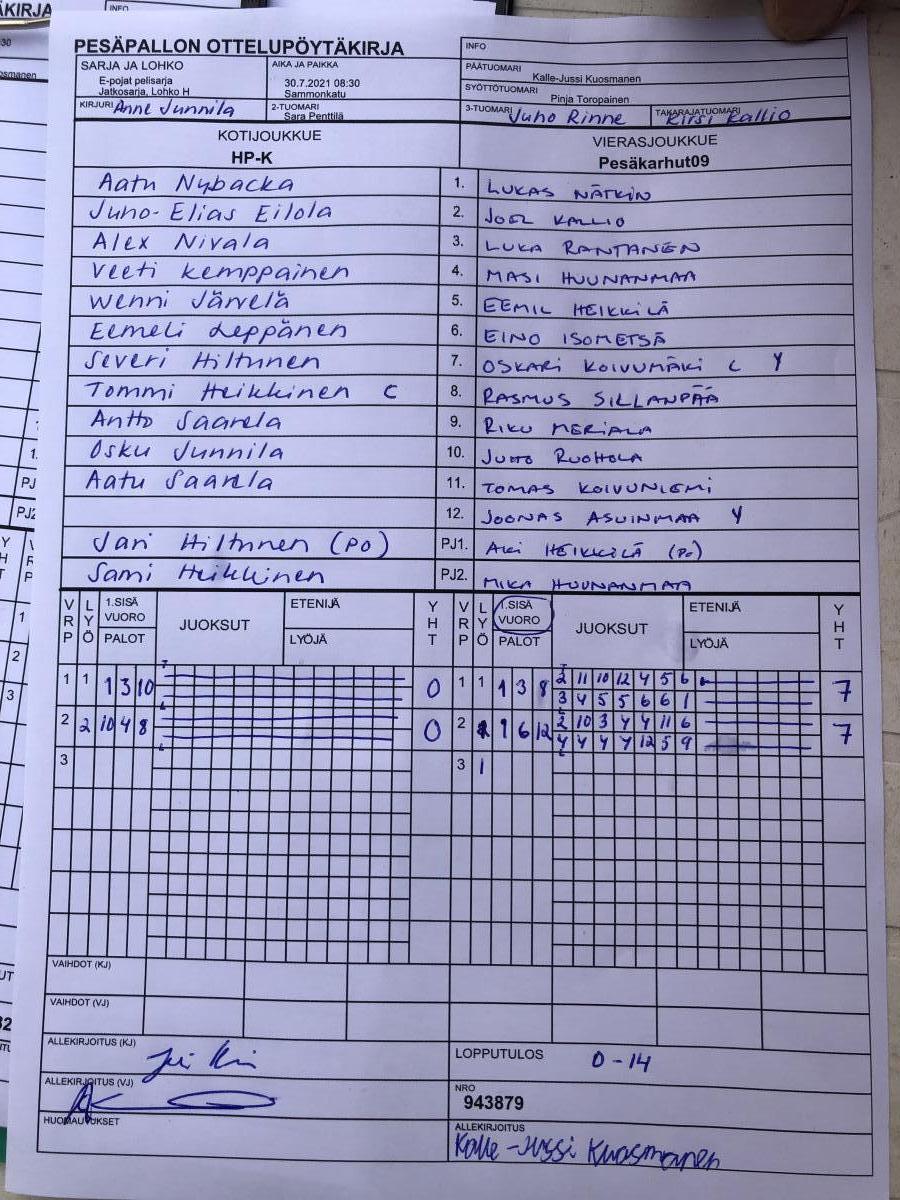 PESÄPALLON OTTELUPÖYTÄKIRJA
INFO
SARJA JA LOHKO
E-pojat pelisarja
Jatkosarja, Lohko H
AIKA JA PAIKKA
30.7.2021 08:30
Sammonkatu
PÄÄTUOMARI
Kalle-Jussi Kuosmanen
SYÖTTÖTUOMARI
Pinja Toropainen
KIRJURI Anne Junnila
2-TUOMARI
Sara Penttilä
3-TUOMARI Juho Rinne
TAKARAJATUOMARI
Kirsi Kallio
KOTIJOUKKUE
HP-K
VIERASJOUKKUE
Pesäkarhut09
Aatu Nybacka 1. LUKAS NÄTKIN
Juho-Elias Eilola 2. JOEL KALLIO
Alex Nivala 3. LUKA RANTANEN
Veeti Kemppainen 4. MASI HUUNANMAA
Wenni Järvelä 5. EEMIL HEIKKILÄ
Eemeli Leppänen 6. EINO ISOMETSÄ
Severi Hiltunen 7. OSKARI KOIVUMÄKI C Y
Tommi Heikkinen C 8. RASMUS SILLANPÄÄ
Antto Saarela 9. RIKU MERIALA
Osku Junnila 10. JUHO RUOHOLA
Aatu Saarela 11. TOMAS KOIVUNIEMI
12. JOONAS ASUINMAA Y
Jari Hiltunen (PO) PJ1. AKI HEIKKILÄ (PO)
Sami Heikkinen PJ2. MIKA HUUNANMAA
VRP LYÖ 1.SISÄ VUORO PALOT JUOKSUT ETENIJÄ LYÖJÄ YHT VRP LYÖ 1.SISÄ VUORO PALOT JUOKSUT ETENIJÄ LYÖJÄ YHT
1 1 1 3 10 0 1 1 1 3 8 2 11 10 12 4 5 6 7
3 4 5 5 6 6 1
2 2 10 4 8 0 2 1 6 12 2 10 3 4 4 11 6 7
4 4 4 4 12 5 9
3 3 1
VAIHDOT (KJ)
VAIHDOT (VJ)
ALLEKIRJOITUS (KJ)
LOPPUTULOS 0-14
ALLEKIRJOITUS (VJ)
NRO
943879
HUOMAUTUKSET
ALLEKIRJOITUS
Kalle-Jussi Kuosmanen